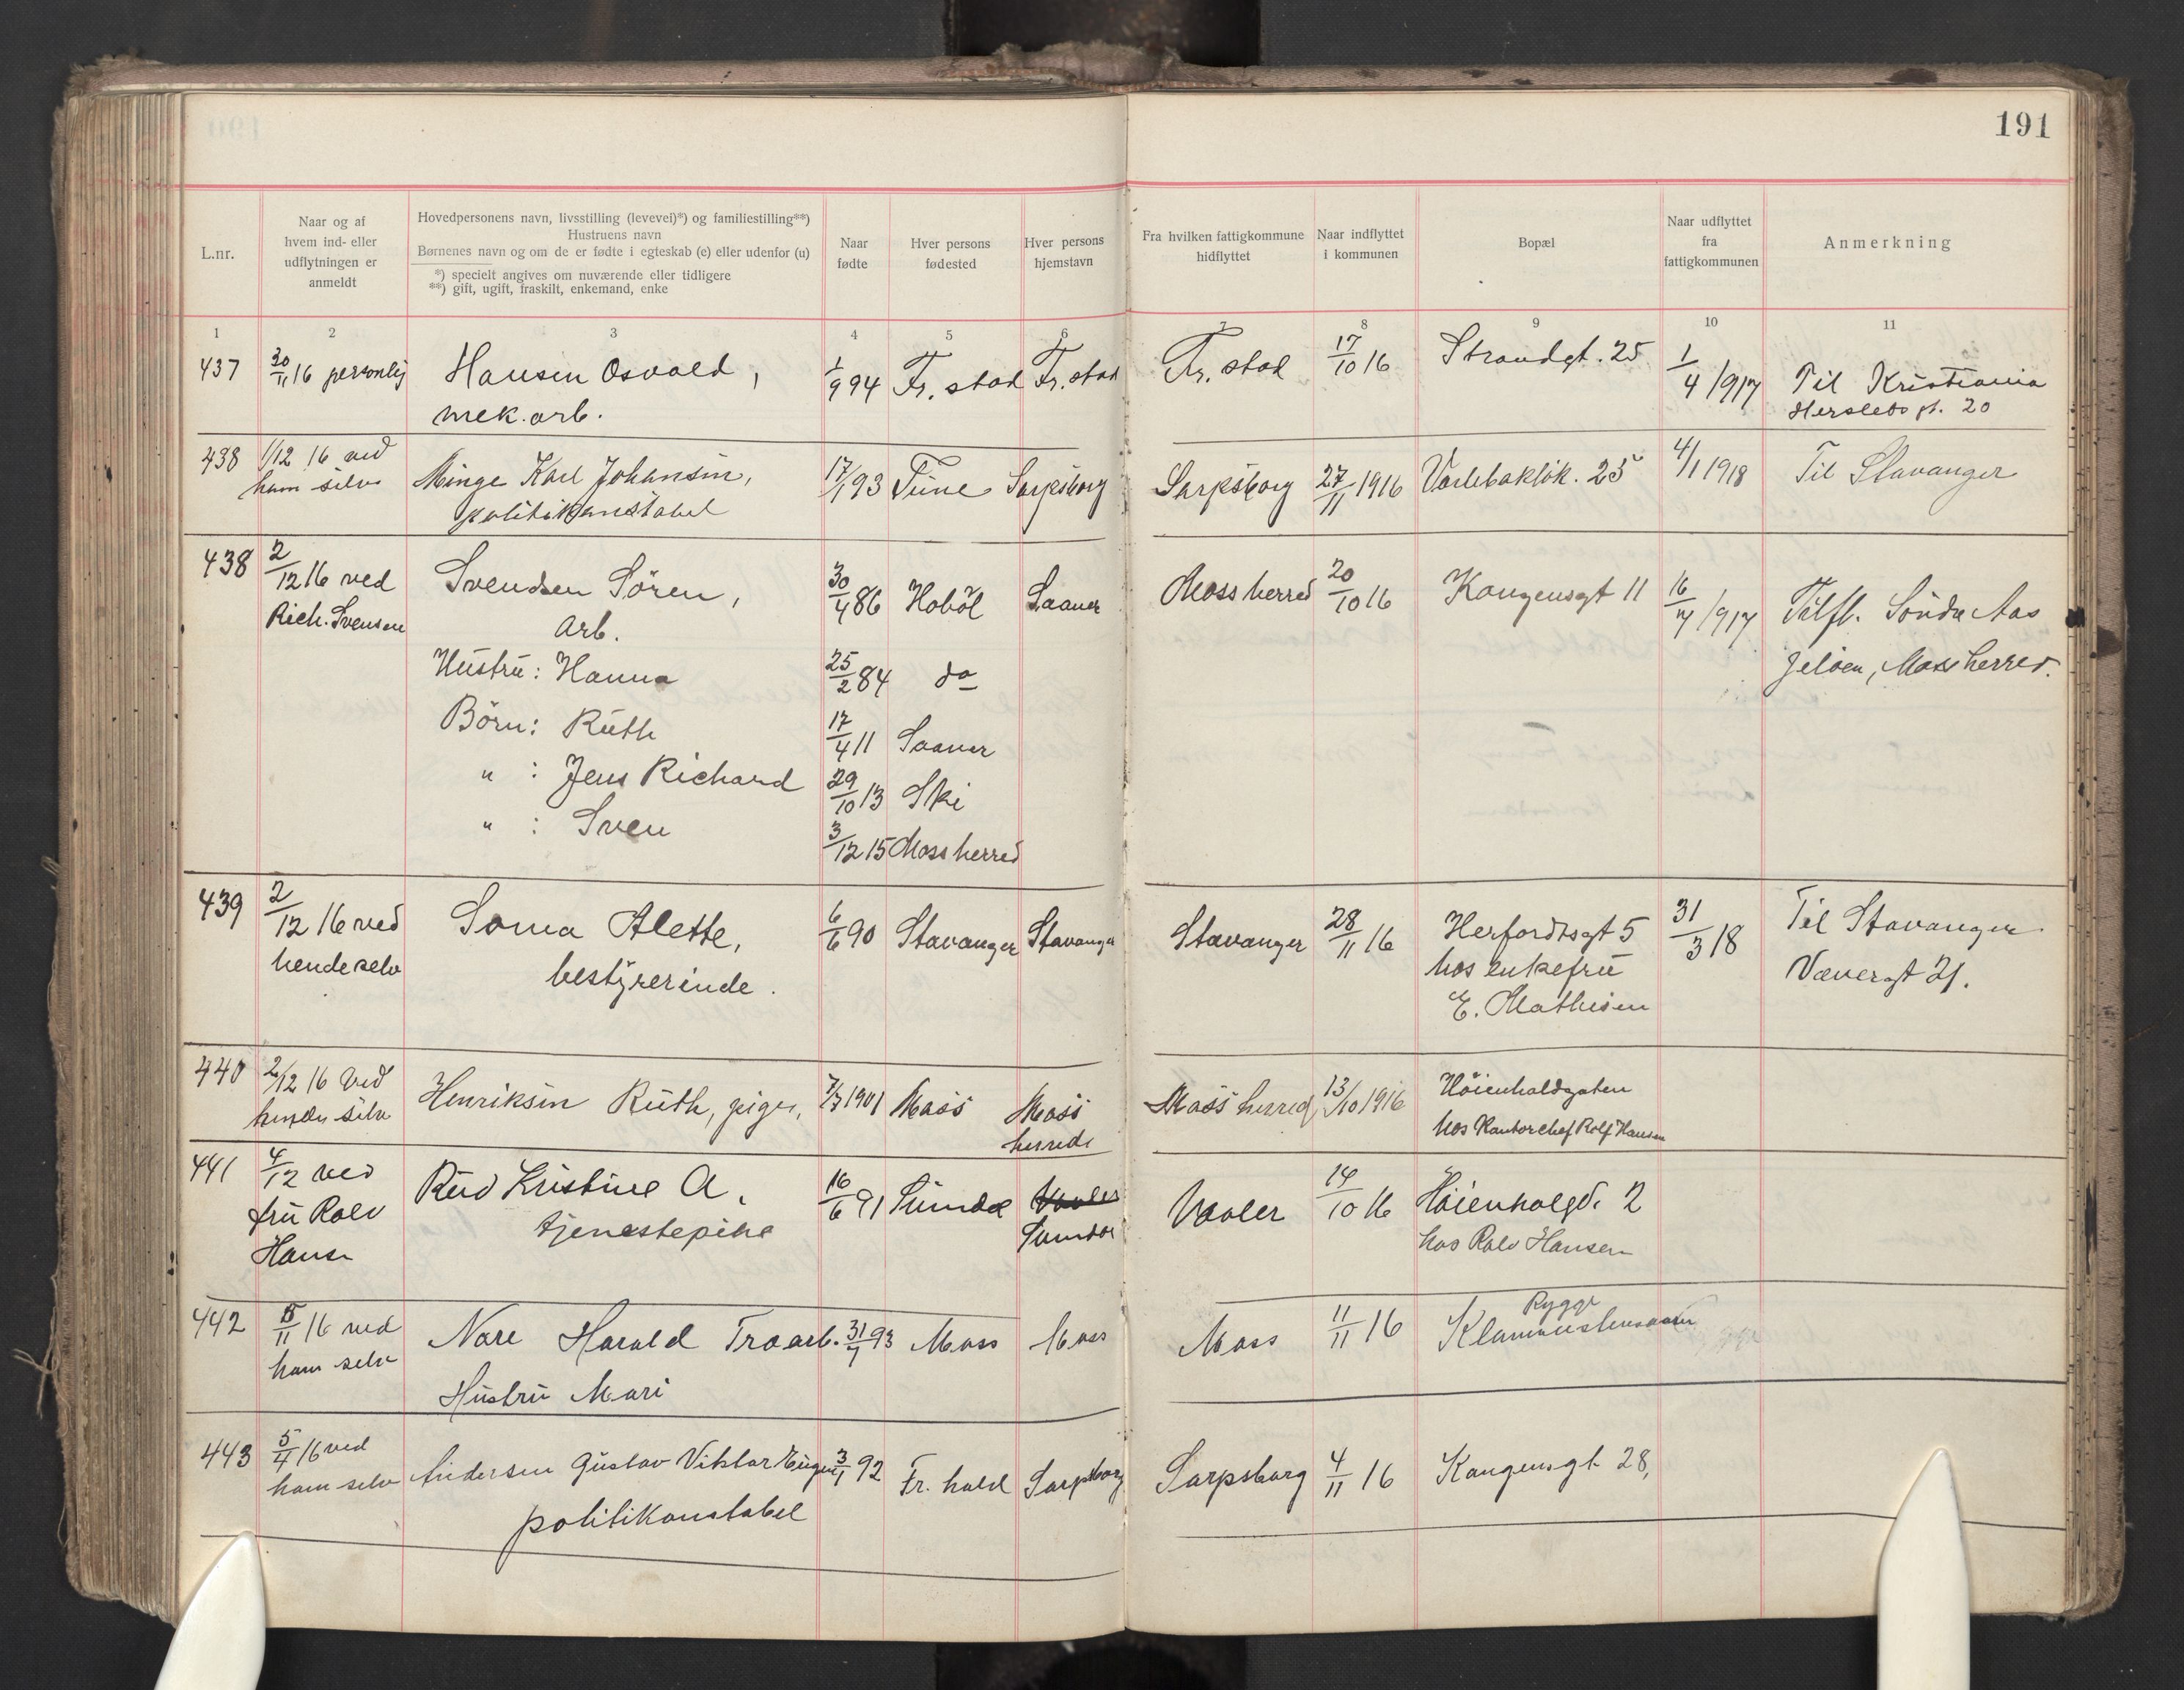 191
L.nr.
Naar og af
hvem ind- eller
udflytningen er
anmeldt
Hovedpersonens navn, livsstilling (levevei)*) og familiestilling**)
Hustruens navn
Børnenes navn og om de er fødte i egteskab (e) eller udenfor (u)
*) specielt angives om nuværende eller tidligere
**) gift, ugift, fraskilt, enkemand, enke
Naar
fødte
Hver persons
fødested
Hver persons
hjemstavn
Fra hvilken fattigkommune
hidflyttet
Naar indflyttet
i kommunen
Bopæl
Naar udflyttet
fra
fattigkommunen
Anmerkning
1 2 3 4 5 6 7 8 9 10 11
437 30/11 16 personlig Hansen Osvald, 1/9 94 Fr. stad Fr. stad Fr. stad 17/10 16 Strandgt. 25 1/4 1917 Til Kristiania
mek. arb. Herslebs gt. 20
438 1/12 16 ved Minge Karl Johansen, 17/1 93 Tune Sarpsborg Sarpsborg 27/11 1916 Varlebakløk. 25 4/1 1918 Til Stavanger
ham selv politikonstabel
438 2/12 16 ved Svendsen Sören, 30/4 86 Hoböl Saaner Moss herred 20/10 16 Kongensgt 11 16/7 1917 Tilfl. Söndre Aas
Rich. Svensen Arb. Jelöen, Moss herred.
Hustru: Hanna 25/2 84 do
Börn: Ruth 17/4 11 Saaner
" : Jens Richard 29/10 13 Ski
" : Sven 3/12 15 Moss herred
439 2/12 16 ved Soma Alette, 6/6 90 Stavanger Stavanger Stavanger 28/11 16 Herfordtsgt 5 31/3 18 Til Stavanger
hende selv bestyrerinde. hos enkefru Vævergt 21.
E. Mathisen
440 2/12 16 ved Henriksen Ruth, pige, 7/7 1901 Moss Moss Moss herred 13/10 1916 Höienhaldgaten
hende selv herred hos Kontorchef Rolf Hansen
441 4/12 ved Rud Kristine A. 16/6 91 Vaaler Vaaler 14/10 16 Höienholgd. 2
fru Rolv tjenestepike hos Rolv Hansen
Hansen
442 11 16 ved Nore Harald Traarb. 31/7 93 Moss Moss Moss 11/11 16 Rygge
ham selv
Hustru Mari
443 5/4 16 ved Andersen Gustav Viktor Eugen 3/1 92 Fr. hald Sarpsborg Sarpsborg 4/11 16 Kongensgt 28,
ham selv politikonstabel